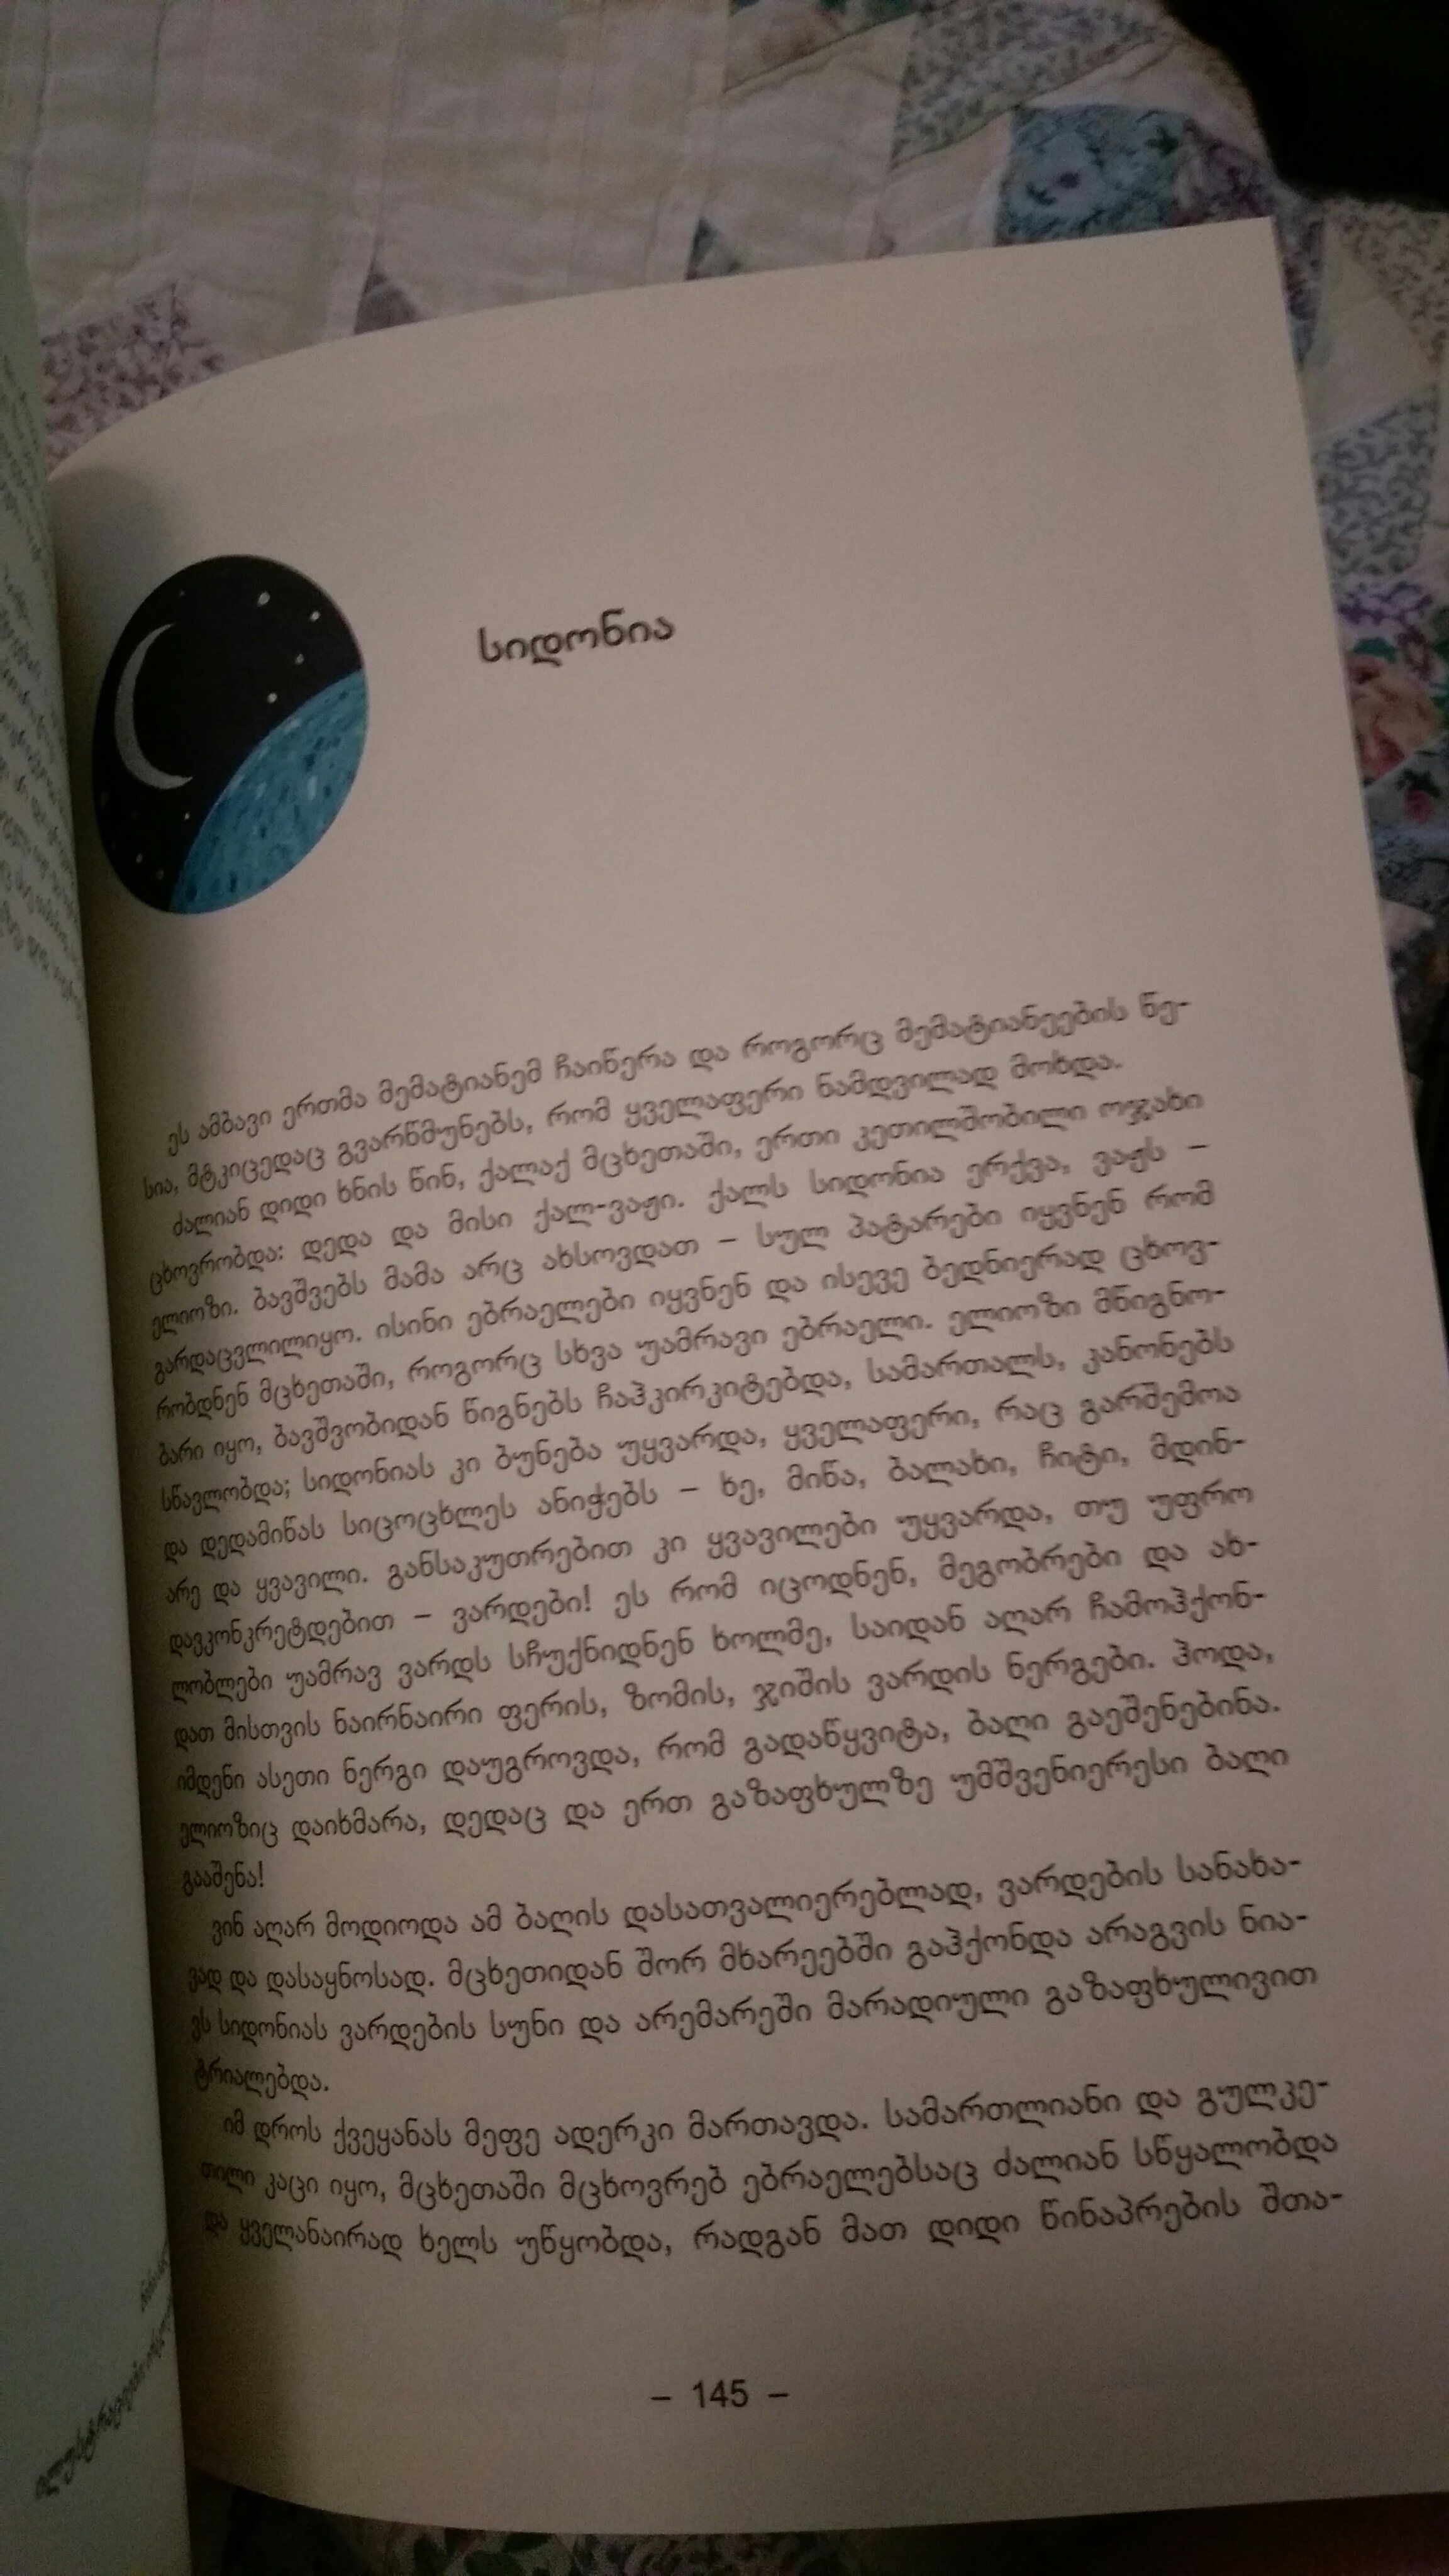 სიდონია
ეს ამბავი ერთმა მემატიანემ ჩაიწერა და როგორც მემატიანეების წე-
სია, მტკიცედაც გვარწმუნებს, რომ ყველაფერი ნამდვილად მოხდა.
ძალიან დიდი ხნის წინ, ქალაქ მცხეთაში, ერთი კეთილშობილი ოჯახი
ცხოვრობდა: დედა და მისი ქალ-ვაჟი. ქალს სიდონია ერქვა, ვაჟს –
ელიოზი. ბავშვებს მამა არც ახსოვდათ – სულ პატარები იყვნენ რომ
გარდაცვლილიყო. ისინი ებრაელები იყვნენ და ისევე ბედნიერად ცხოვ-
რობდნენ მცხეთაში, როგორც სხვა უამრავი ებრაელი. ელიოზი მწიგნო-
ბარი იყო, ბავშვობიდან წიგნებს ჩაჰკირკიტებდა, სამართალს, კანონებს
სწავლობდა; სიდონიას კი ბუნება უყვარდა, ყველაფერი, რაც გარშემოა
და დედამიწას სიცოცხლეს ანიჭებს – ხე, მიწა, ბალახი, ჩიტი, მდინ-
არე და ყვავილი. განსაკუთრებით კი ყვავილები უყვარდა, თუ უფრო
დავკონკრეტდებით – ვარდები! ეს რომ იცოდნენ, მეგობრები და ახ-
ლობლები უამრავ ვარდს სჩუქნიდნენ ხოლმე, საიდან აღარ ჩამოჰქონ-
დათ მისთვის ნაირნაირი ფერის, ზომის, ჯიშის ვარდის ნერგები. ჰოდა,
იმდენი ასეთი ნერგი დაუგროვდა, რომ გადაწყვიტა, ბაღი გაეშენებინა.
ელიოზიც დაიხმარა, დედაც და ერთ გაზაფხულზე უმშვენიერესი ბაღი
გააშენა!
ვინ აღარ მოდიოდა ამ ბაღის დასათვალიერებლად, ვარდების სანახა-
ვად და დასაყნოსად. მცხეთიდან შორ მხარეებში გაჰქონდა არაგვის ნია-
ვს სიდონიას ვარდების სუნი და არემარეში მარადიული გაზაფხულივით
ტრიალებდა.
იმ დროს ქვეყანას მეფე ადერკი მართავდა. სამართლიანი და გულკე-
თილი კაცი იყო, მცხეთაში მცხოვრებ ებრაელებსაც ძალიან სწყალობდა
და ყველანაირად ხელს უწყობდა, რადგან მათ დიდი წინაპრების შთა-
– 145 –